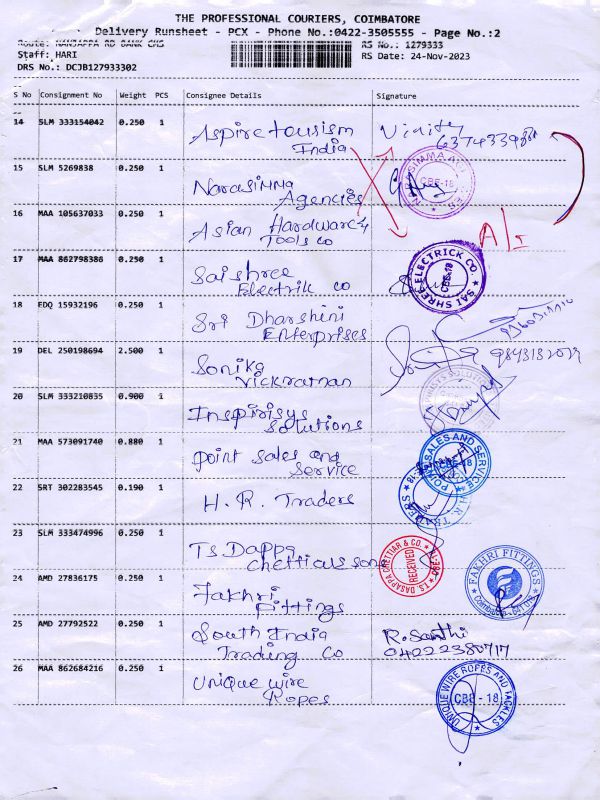 THE PROFESSIONAL COURIERS, COIMBATORE
Delivery Runsheet - PCX - Phone No.:0422-3505555 - Page No.:2
Route: NANJAPPA RD BANK CHS
RS No.: 1279333
Staff: HARI
RS Date: 24-Nov-2023
DRS No.: DCJB127933302
S No Consignment No Weight PCS Consignee Details Signature
14 SLM 333154042 0.250 1 Aspire tourism India
15 SLM 5269838 0.250 1 Narasimma Agencies
CBE-18
16 MAA 105637033 0.250 1 Asian Hardware & Tools co
17 MAA 862798386 0.250 1 Saishree Electrik co
SAI SHREE ELECTRICK CO
CBE-18
18 EDQ 15932196 0.250 1 Sri Dharshini Enterprises
19 DEL 250198694 2.500 1 Sonika
20 SLM 333210835 0.900 1 Inspirisys Solutions
21 MAA 573091740 0.880 1 point sales and Service
POINT SALES AND SERVICE
22 SRT 302283545 0.190 1 H.R. Traders
23 SLM 333474996 0.250 1 T.S. Dappa
T.S. DASAPPA CHETTIAR & CO.
RECEIVED
24 AMD 27836175 0.250 1 Fakhri Fittings
FAKHRI FITTINGS
25 AMD 27792522 0.250 1 South India Trading Co R. Santhi
04222380717
26 MAA 862684216 0.250 1 Unique wire Ropes
UNIQUE WIRE ROPES AND TACKLES
CBE - 18